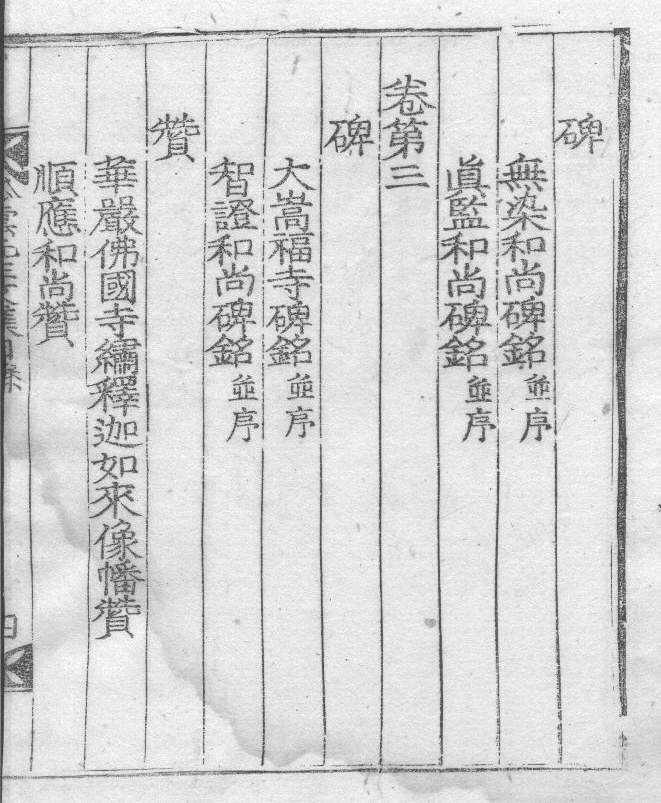 碑
無染和尚碑銘並序
眞監和尚碑銘並序
卷第三
碑
大嵩福寺碑銘並序
智證和尚碑銘並序
贊
華嚴佛國寺繡釋迦如來像幡贊
順應和尚贊